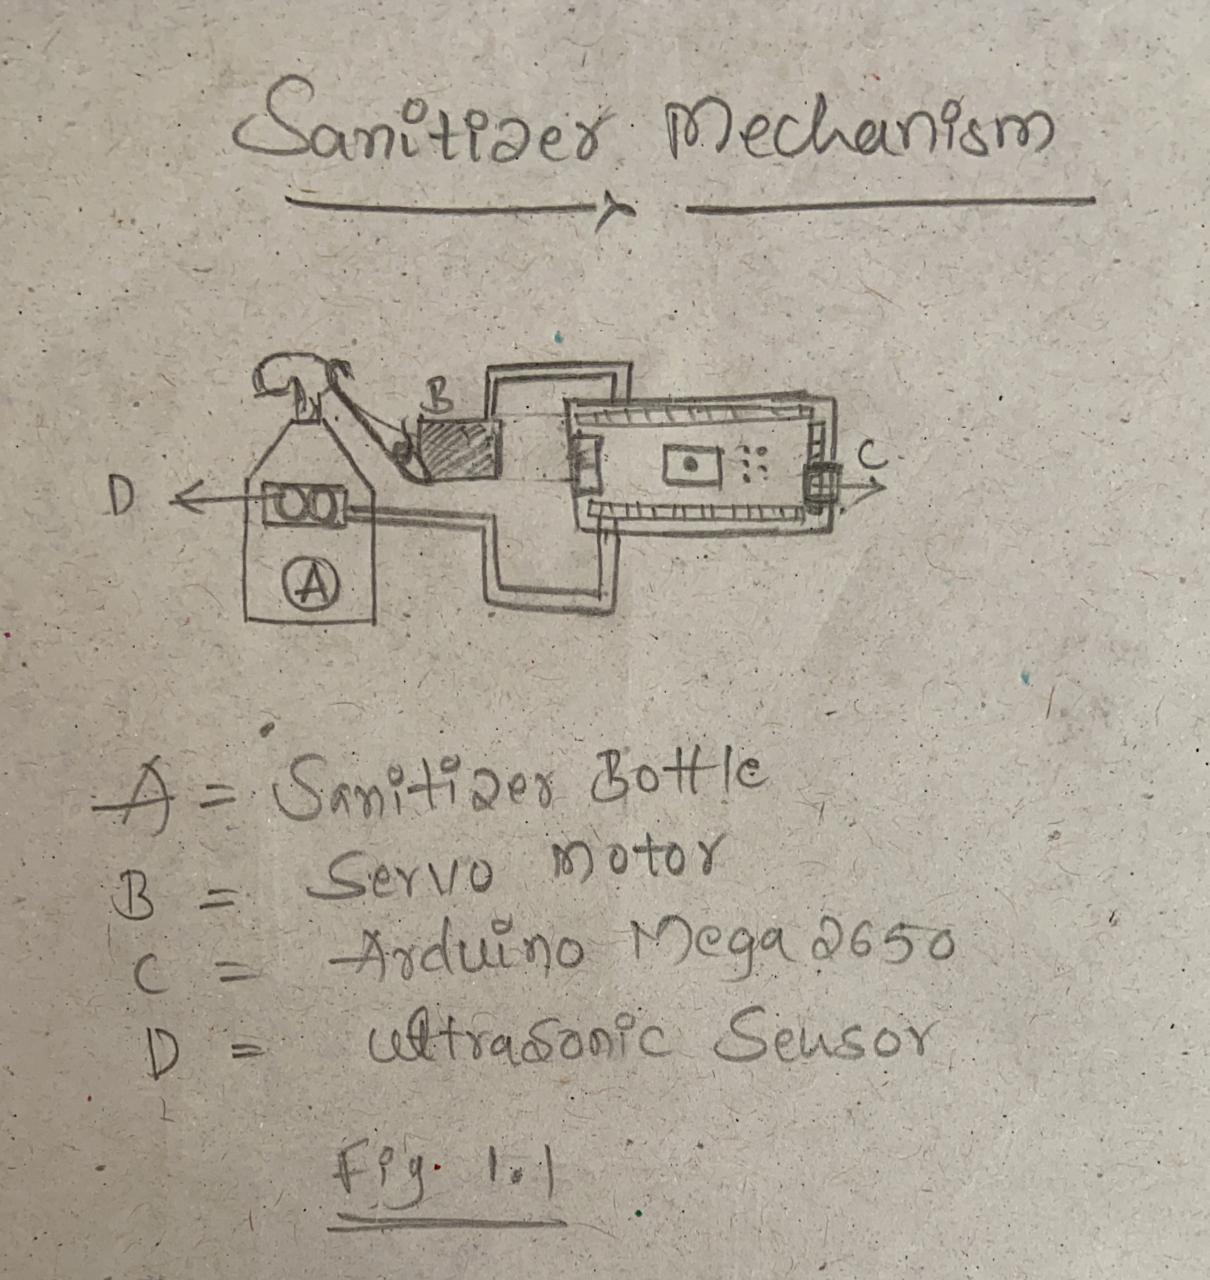 Sanitizer Mechanism
B
C
D
A
A = Sanitizer Bottle
B = Servo motor
C = Arduino Mega 2650
D = ultrasonic Sensor
Fig. 1.1